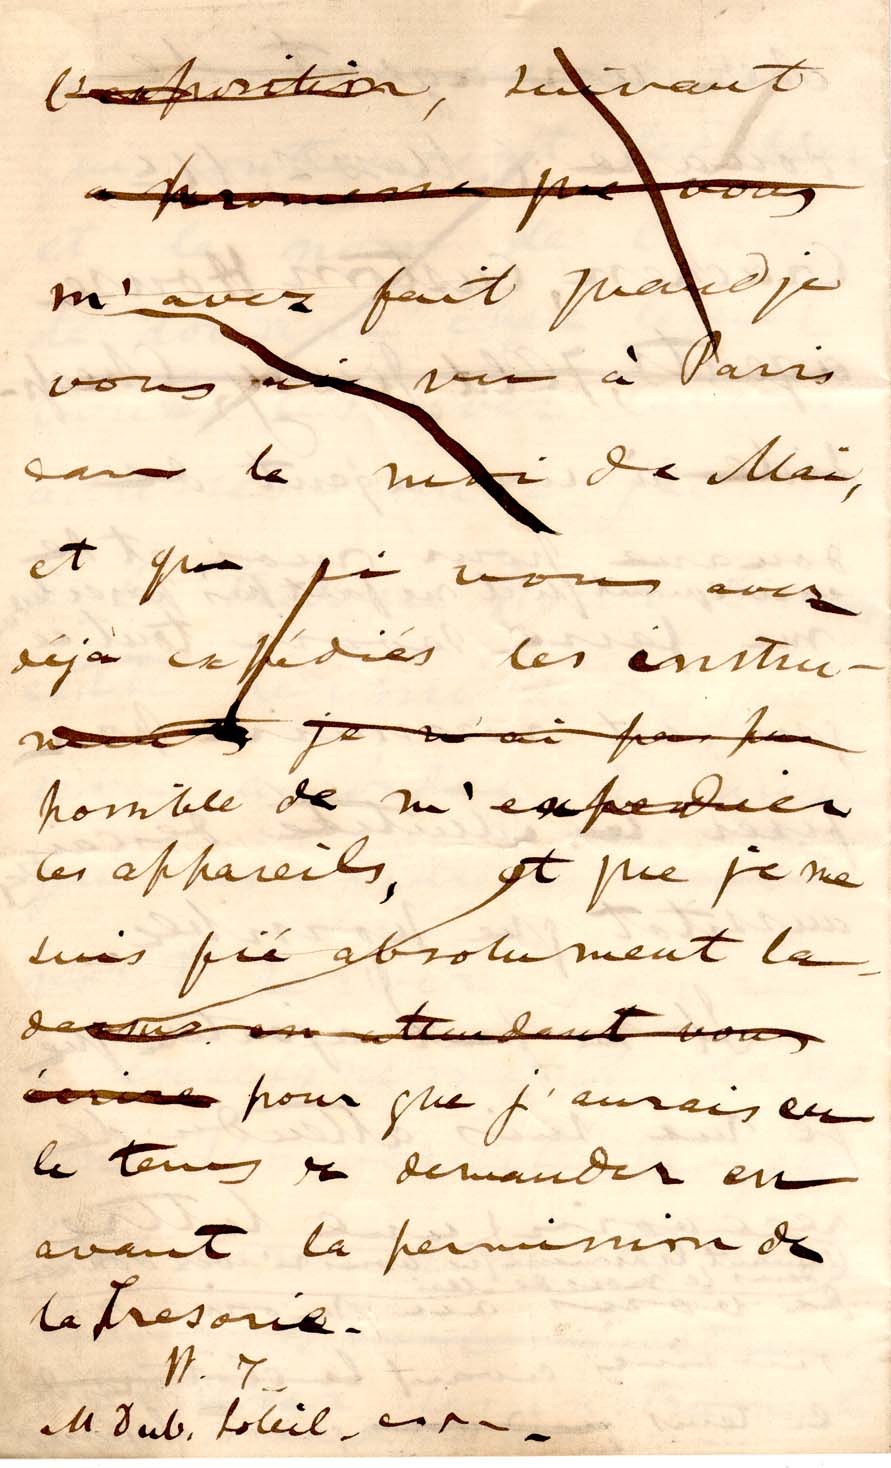 l'exposition, suivant
a promesse que vous
m'avez fait quand je
vous ai vu à Paris
dans le moi de Mai,
et que si vous avez
déjà expédiés les instru-
ments je n'ai pas pu
possible de m'expedier
les appareils, et que je me
suis fié absolument la-
dessus en attendant vous
écrire pour que j'aurais eu
le tems de demander en
avant la permission de
la Tresorie.
M. Dub. Soleil.